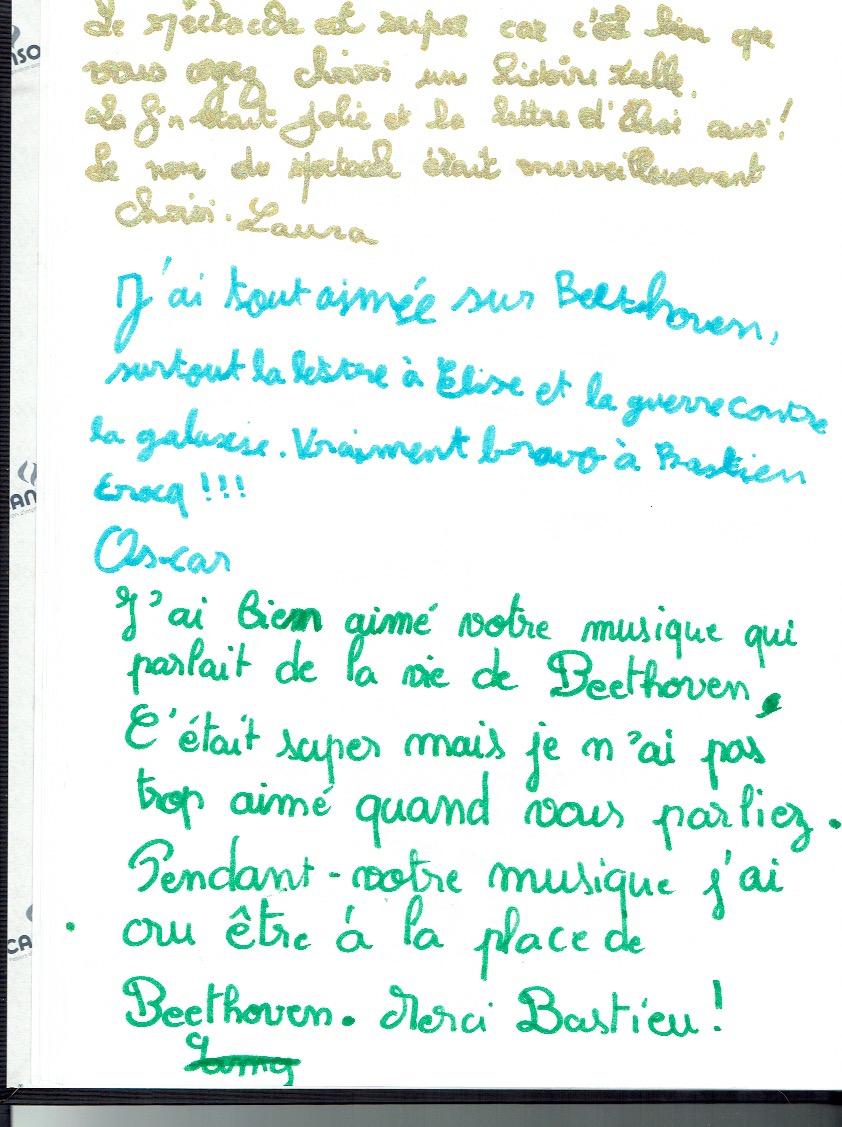 Le spectacle est super car c'est bien que
vous ayez choisi un histoire réelle.
La fin était jolie et la lettre d'Elisi aussi!
Le nom du spectacle était merveilleusement
choisi. Laura
J'ai tout aimée sur Beethoven,
surtout la lettre à Elise et la guerre contre
la galaxie. Vraiment bravo à Bastien
Crocq !!!
Oscar
J'ai bien aimé votre musique qui
parlait de la vie de Beethoven.
C'était super mais je n'ai pas
trop aimé quand vous parliez.
Pendant-votre musique j'ai
cru être à la place de
Beethoven. Merci Bastien!